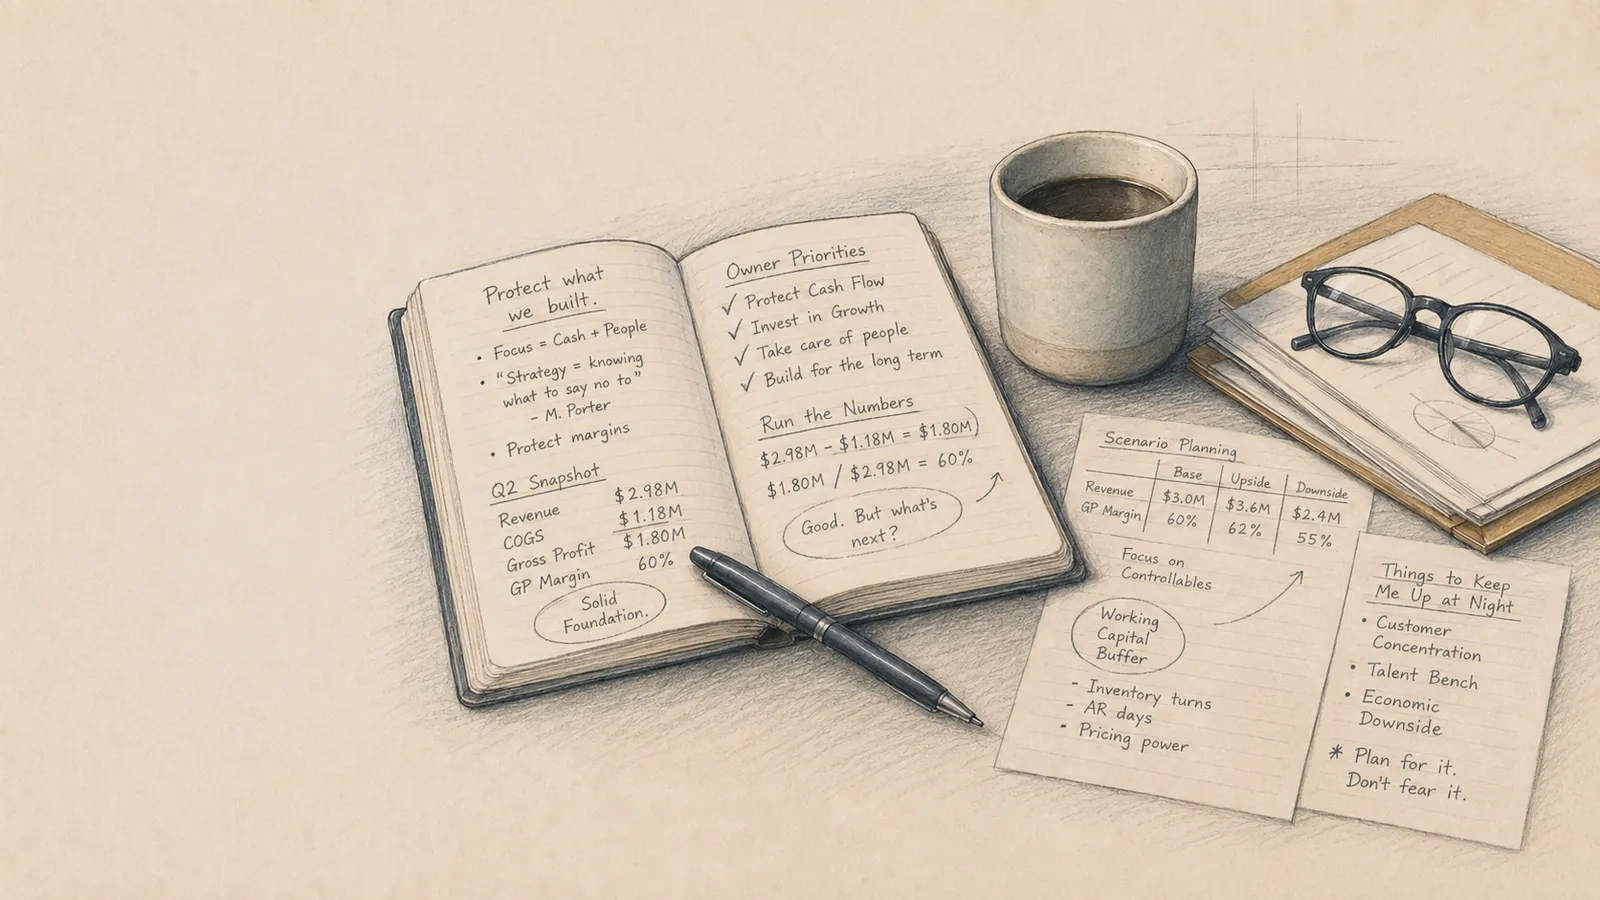 Protect what
we built.
• Focus = Cash + People
• "Strategy = knowing
what to say no to"
- M. Porter
• Protect margins
Q2 Snapshot
Revenue $2.98M
COGS $1.18M
Gross Profit $1.80M
GP Margin 60%
Solid
Foundation.
Owner Priorities
✓ Protect Cash Flow
✓ Invest in Growth
✓ Take care of people
✓ Build for the long term
Run the Numbers
$2.98M - $1.18M = $1.80M)
$1.80M / $2.98M = 60%
Good. But what's
next?
Scenario Planning
Base Upside Downside
Revenue $3.0M $3.6M $2.4M
GP Margin 60% 62% 55%
Focus on
Controllables
Working
Capital
Buffer
- Inventory turns
- AR days
• Pricing power
Things to Keep
Me Up at Night
• Customer
Concentration
• Talent Bench
• Economic
Downside
* Plan for it.
Don't fear it.